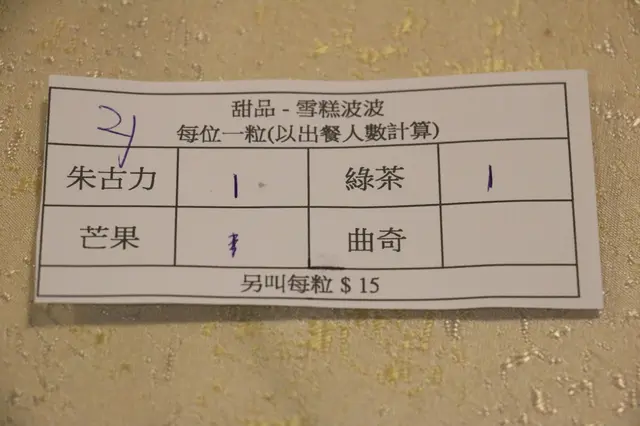 甜品 - 雪糕波波
每位一粒(以出餐人數計算)
朱古力 1 綠茶 1
芒果 曲奇
另叫每粒 $ 15